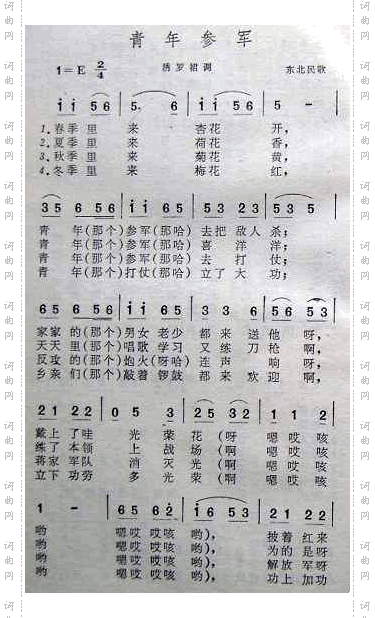 青年参军
1=E 2/4 绣罗裙调 东北民歌
i i 5 6 | 5. 6 | i i 5 6 | 5 - |
1.春季里来 杏花开，
2.夏季里来 荷花香，
3.秋季里来 菊花黄，
4.冬季里来 梅花红，
3 5 6 5 6 | i i 6 5 | 5 3 2 3 | 5 3 5 |
青年(那个)参军(那哈)去把敌人杀；
青年(那个)参军(那哈)喜洋洋；
青年(那个)参军(那哈)去打仗；
青年(那个)打仗(那哈)立了大功；
6 5 6 5 6 | i i 6 5 | 3 3 2 3 | 5 6 5 3 |
家家的(那个)男女老少都来送他呀，
天天里(那个)唱歌学习又练刀枪啊，
反攻的(那个)炮火(呀哈)连声响呀，
乡亲们(那个)敲着锣鼓都来欢迎啊，
2 1 2 2 | 0 5 3 | 2 5 3 2 | 1 1 2 |
戴上了哇光荣花(呀 嗯哎咳
练了本领上战场(啊 嗯哎咳
蒋家军队消灭光(啊 嗯哎咳
立下功劳多光荣(啊 嗯哎咳
1 - | 6 5 6 2 | i 6 5 3 | 2 1 2 2 |
哟 嗯哎哎咳哟)，披着红来
哟 嗯哎哎咳哟)，为的是呀
哟 嗯哎哎咳哟)，解放军呀
哟 嗯哎哎咳哟)，功上加功
词曲网